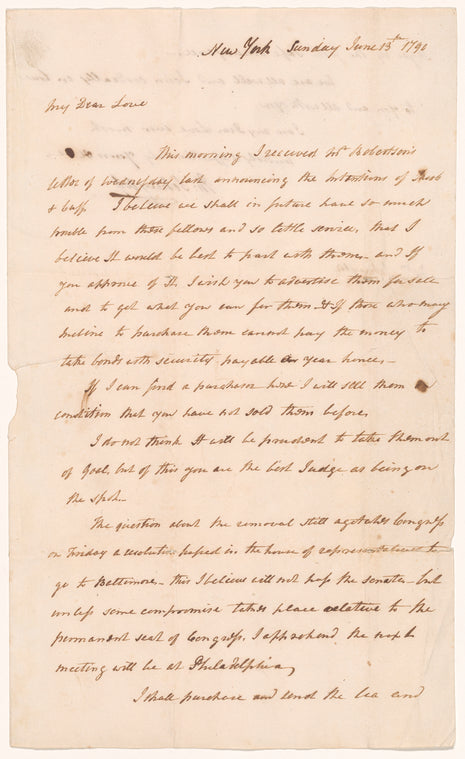 New York Sunday June 13th 1790
My Dear Love
This morning I received Mr Robertson's
letter of Wednesday last announcing the Intentions of Jacob
& Cuff. I believe we shall in future have so much
trouble from these fellows and so little service, that I
believe It would be best to part with them. and If
you approve of It, I wish you to advertise them for sale
and to get what you can for them. & If those who may
Incline to purchase them cannot pay the money to
take bonds with security payable a year hence. –
If I can find a purchaser here I will sell them on
condition that you have not sold them before.
I do not think It will be prudent to take them out
of Goal, but of this you are the best Judge as being on
the spot. –
The question about the removal still agitates Congress
on Friday a resolution passed in the house of representatives to
go to Baltimore – this I believe will not pass the senate – but
unless some compromise takes place relative to the
permanent seat of Congress, I apprehend the next
meeting will be at Philadelphia,
I shall purchase and send the tea and